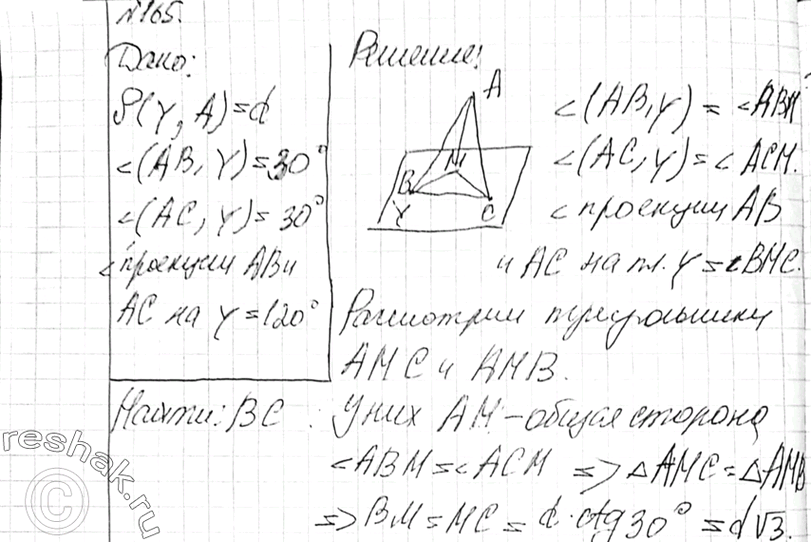 №165.
Дано:
ρ(γ, A)=d
∠(AB, γ)=30°
∠(AC, γ)=30°
∠ проекции AB и
AC на γ=120°
Найти: BC
Решение:
A
B
M
C
γ
∠(AB, γ) = ∠ABM
∠(AC, γ) = ∠ACM.
∠ проекции AB
и AC на пл. γ = ∠BMC.
Рассмотрим треугольники
AMC и AMB.
У них AM - общая сторона
∠ABM = ∠ACM => △AMC = △AMB
=> BM = MC = d · ctg 30° = d√3.
reshak.ru
©